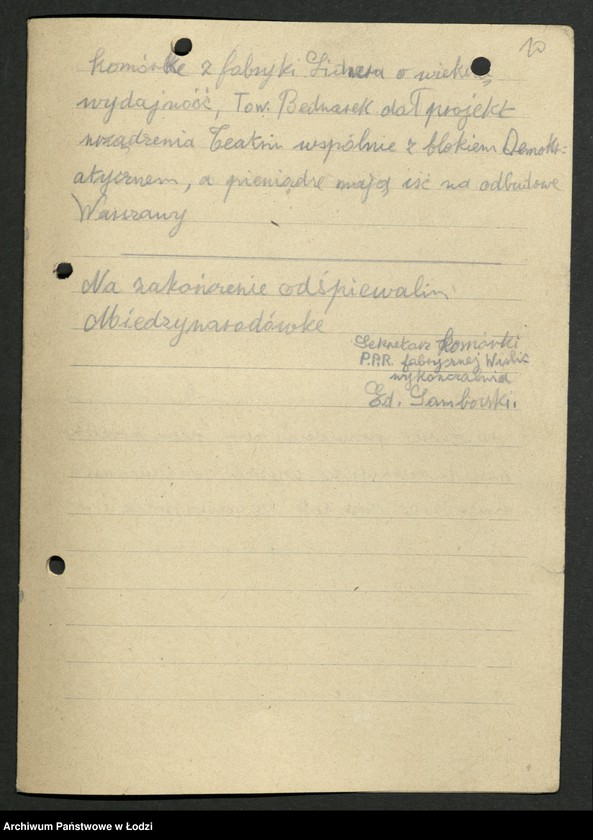 10
komórkę z fabryki o większą
wydajność, Tow. Bednarek dał projekt
urządzenia Teatru wspólnie z blokiem Demokr=
atycznem, a pieniądze mają iść na odbudowę
Warszawy
Na zakończenie odśpiewaliśmy
Międzynarodówkę
Sekretarz komórki
P.P.R. fabrycznej
wykończalnia
Ed. Samborski.
Archiwum Państwowe w Łodzi